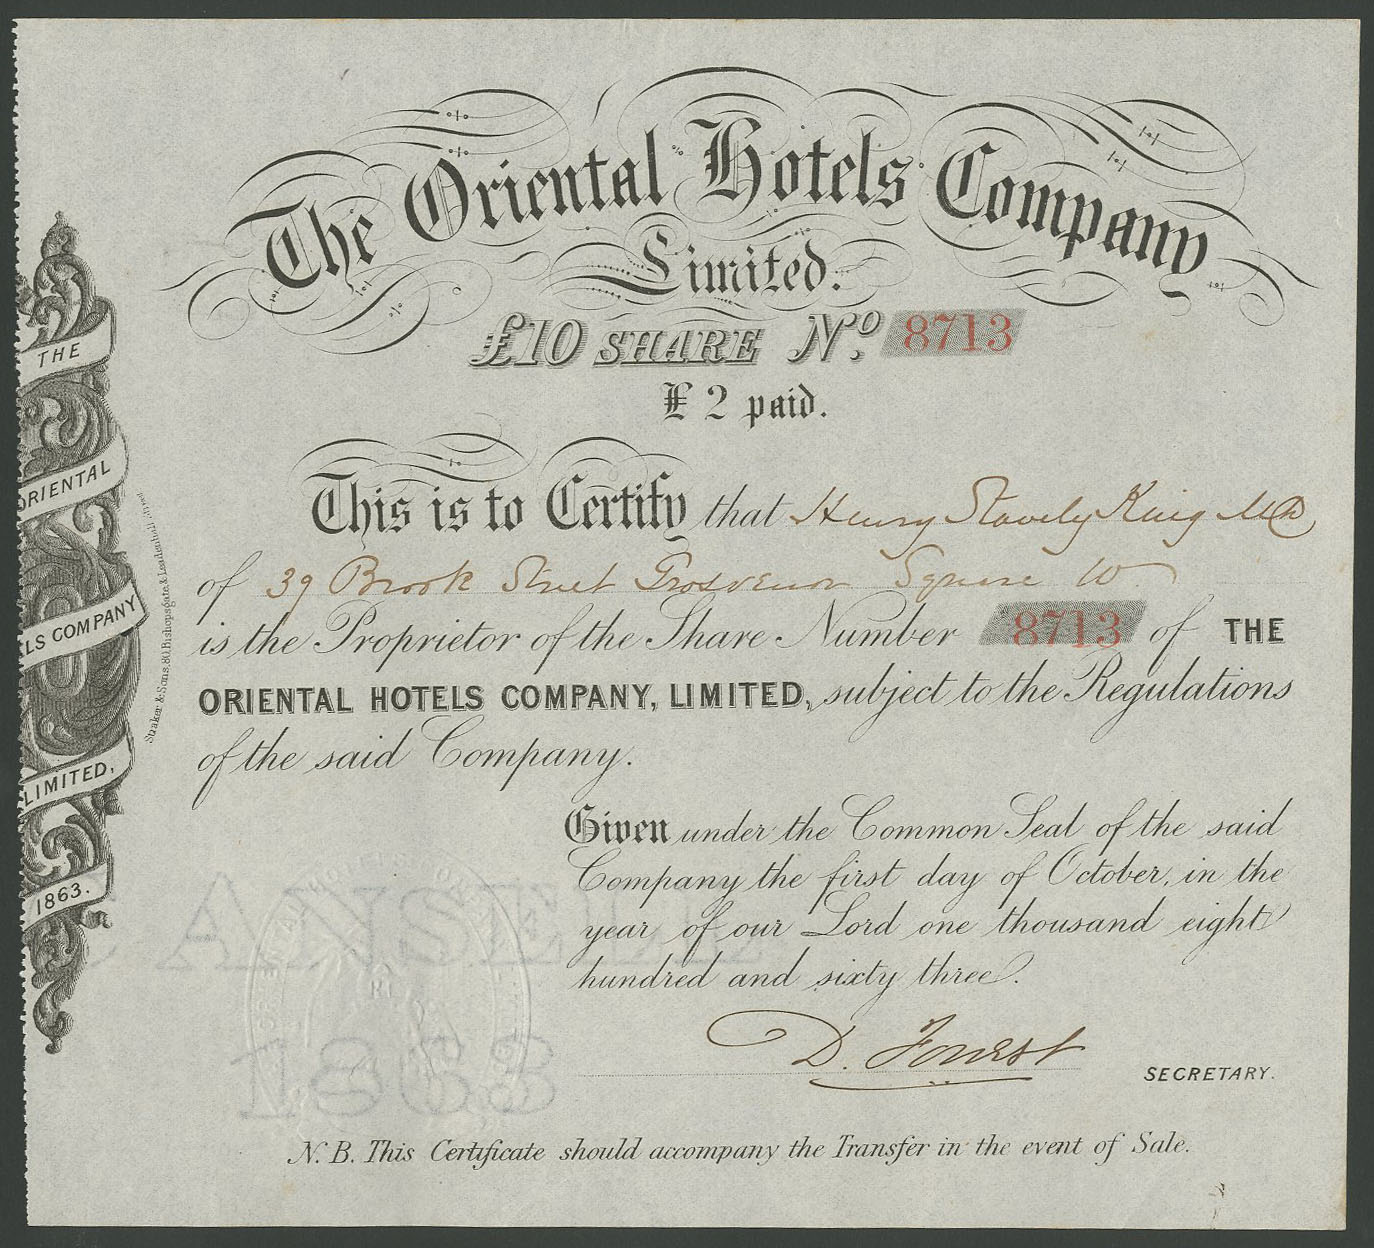 The Oriental Hotels Company
Limited.
£10 SHARE No. 8713
£2 paid.
This is to Certify that Henry Stavely King MD
of 39 Brook Street Grosvenor Square W
is the Proprietor of the Share Number 8713 of THE
ORIENTAL HOTELS COMPANY, LIMITED, subject to the Regulations
of the said Company.
Given under the Common Seal of the said
Company the first day of October, in the
year of our Lord one thousand eight
hundred and sixty three.
D. Forrest
SECRETARY.
N.B. This Certificate should accompany the Transfer in the event of Sale.
THE
ORIENTAL
ELS COMPANY
LIMITED,
1863.
Straker & Sons, 80, Bishopsgate & Leadenhall
ANSELL
1863